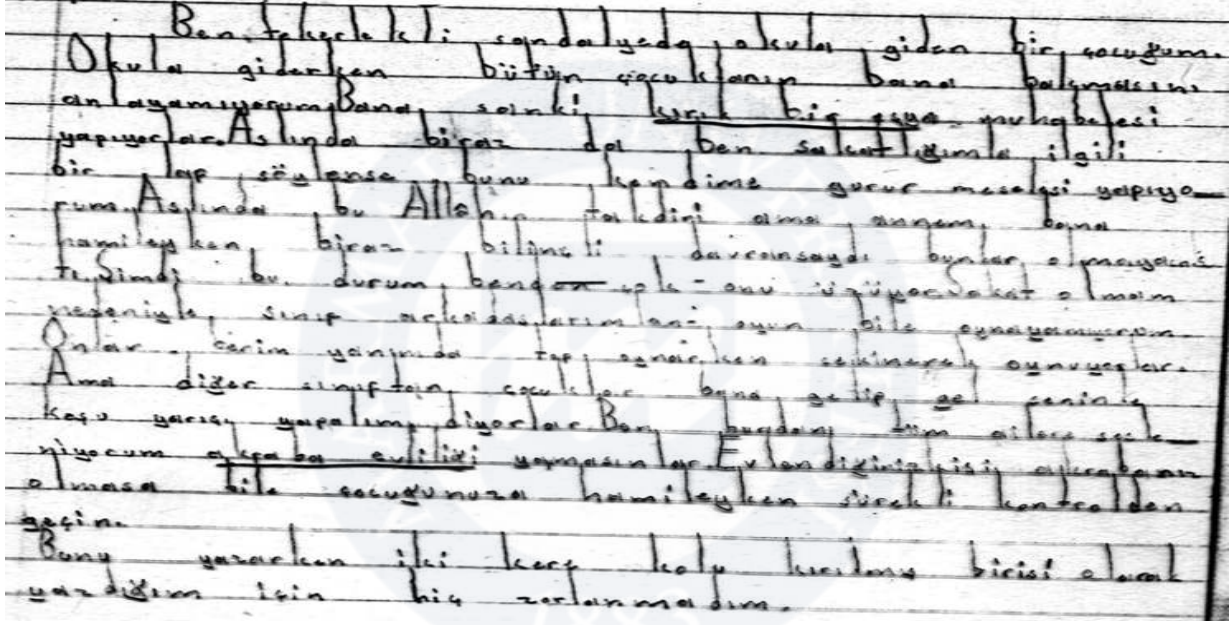 Ben tekerlekli sandalyede okula giden bir çocuğum.
Okula giderken bütün çocukların bana bakmasını
anlayamıyorum. Bana sanki kırık bir eşya muhabelesi
yapıyorlar. Aslında biraz da ben sakatlığımla ilgili
bir lap söylense bunu kendime gurur meselesi yapıyo-
rum. Aslında bu Allahın takdiri ama annem bana
hamileyken biraz bilinçli davransaydı bunlar olmayacak
tı. Şimdi bu durum benden çok onu üzüyor. Sakat olmam
nedeniyle sınıf arkadaşlarımlan oyun bile oynayamıyorum.
Onlar benim yanımda top oynarken çekinerek oynuyorlar.
Ama diğer sınıftan çocuklar bana gelip gel seninle
koşu yarışı yapalım diyorlar. Ben burdan tüm ailere sesle-
niyorum akraba evliliği yapmasınlar. Evlendiğiniz kişi akrabanız
olmasa bile çocuğunuza hamileyken sürekli kontrolden
geçin.
Bunu yazarken iki kere kolu kırılmış birisi olarak
yazdığım için hiç zorlanmadım.